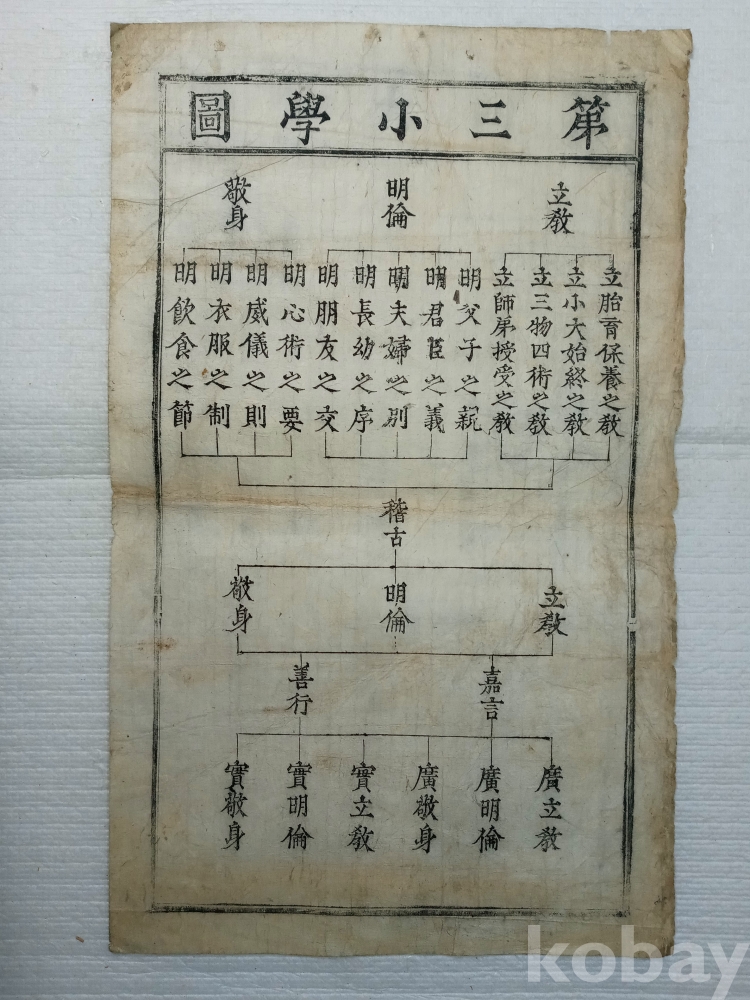 第三小學圖
立敎
明倫
敬身
立胎育保養之敎
立小大始終之敎
立三物四術之敎
立師弟授受之敎
明父子之親
明君臣之義
明夫婦之別
明長幼之序
明朋友之交
明心術之要
明威儀之則
明衣服之制
明飮食之節
稽古
立敎
明倫
敬身
嘉言
善行
廣立敎
廣明倫
廣敬身
實立敎
實明倫
實敬身
kobay